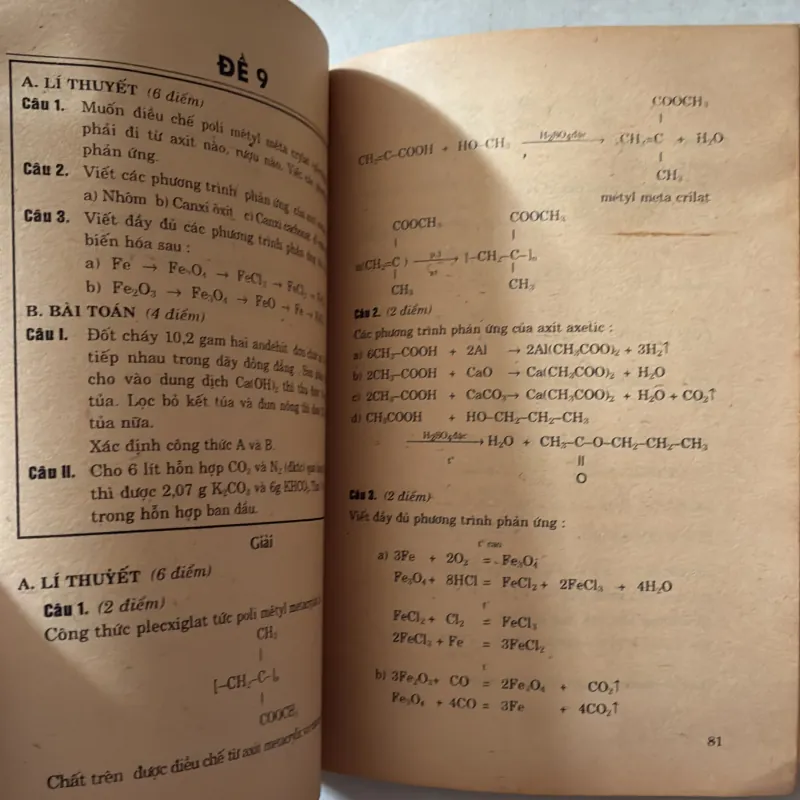 ĐỀ 9
A. LÍ THUYẾT (6 điểm)
Câu 1. Muốn điều chế poli mêtyl mêta crylat
phải đi từ axit nào, rượu nào. Viết các
phản ứng.
Câu 2. Viết các phương trình phản ứng của axit
a) Nhôm b) Canxi ôxit c) Canxi cacbonat
Câu 3. Viết đầy đủ các phương trình phản ứng
biến hóa sau :
a) Fe → Fe₃O₄ → FeCl₂ → FeCl₃ →
b) Fe₂O₃ → Fe₃O₄ → FeO → Fe →
B. BÀI TOÁN (4 điểm)
Câu I. Đốt cháy 10,2 gam hai andehit đơn chức
tiếp nhau trong dãy đồng đẳng.
cho vào dung dịch Ca(OH)₂ thì thu được
tủa. Lọc bỏ kết tủa và đun nóng thì
tủa nữa.
Xác định công thức A và B.
Câu II. Cho 6 lít hỗn hợp CO₂ và N₂ (đktc) qua
thì được 2,07 g K₂CO₃ và 6g KHCO₃
trong hỗn hợp ban đầu.
Giải
A. LÍ THUYẾT (6 điểm)
Câu 1. (2 điểm)
Công thức plecxiglat tức poli mêtyl
CH₃
|
[–CH₂–C–]ₙ
|
COOCH₃
Chất trên được điều chế từ axit
COOCH₃
|
CH₂=C–COOH + HO–CH₃ H₂SO₄đặc → CH₂=C + H₂O
|
CH₃
mêtyl meta crilat
COOCH₃ COOCH₃
| |
n(CH₂=C ) → [–CH₂–C–]ₙ
| |
CH₃ CH₃
Câu 2. (2 điểm)
Các phương trình phản ứng của axit axetic :
a) 6CH₃–COOH + 2Al → 2Al(CH₃COO)₂ + 3H₂↑
b) 2CH₃–COOH + CaO → Ca(CH₃COO)₂ + H₂O
c) 2CH₃–COOH + CaCO₃→ Ca(CH₃COO)₂ + H₂O + CO₂↑
d) CH₃COOH + HO–CH₂–CH₂–CH₃
H₂SO₄đặc → H₂O + CH₃–C–O–CH₂–CH₂–CH₃
t° ||
O
Câu 3. (2 điểm)
Viết đầy đủ phương trình phản ứng :
a) 3Fe + 2O₂ = Fe₃O₄
Fe₃O₄ + 8HCl = FeCl₂ + 2FeCl₃ + 4H₂O
FeCl₂ + Cl₂ = FeCl₃
2FeCl₃ + Fe = 3FeCl₂
b) 3Fe₂O₃+ CO = 2Fe₃O₄ + CO₂↑
Fe₃O₄ + 4CO = 3Fe + 4CO₂↑
81